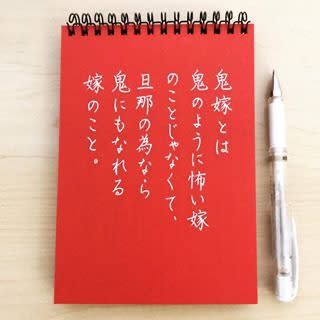 鬼嫁とは
鬼のように怖い嫁
のことじゃなくて、
旦那の為なら
鬼にもなれる
嫁のこと。